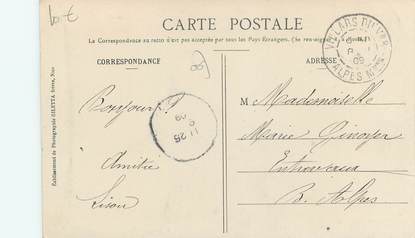 10 €
CARTE POSTALE
La Correspondance au recto n'est pas acceptée par tous les Pays Etrangers. (Se renseigner
CORRESPONDANCE
ADRESSE
Etablissement de Photographie GILETTA frères, Nice
VILLARS DU VAR
09
ALPES Mmes
Bonjour
Amitié
Lison
11 25
09
M Mademoiselle
Marie
Entrevaux
B. Alpes